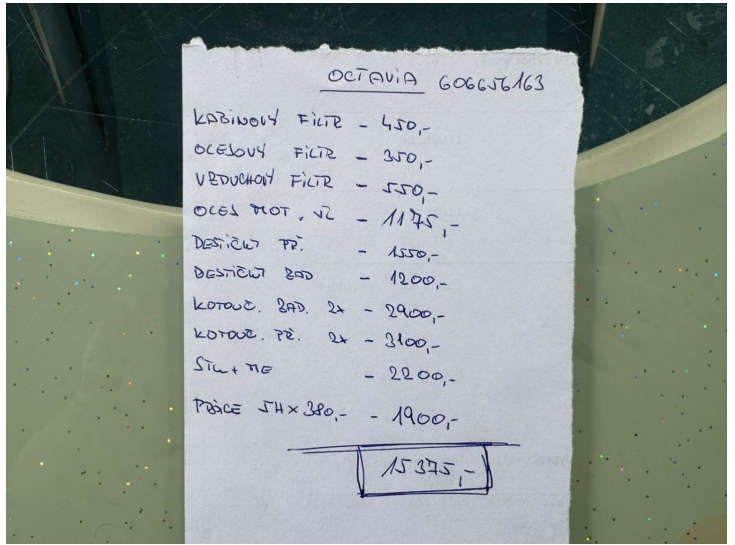 OCTAVIA 606656163
KABINOVÝ FILTR - 450,-
OLEJOVÝ FILTR - 350,-
VZDUCHOVÝ FILTR - 550,-
OLEJ MOT. - 1175,-
DESTIČKY PŘ. - 1550,-
DESTIČKY ZAD - 1200,-
KOTOUČ. ZAD. 2x - 2900,-
KOTOUČ. PŘ. 2x - 3100,-
STK + ME - 2200,-
PRÁCE 5H x 380,- - 1900,-
15375,-